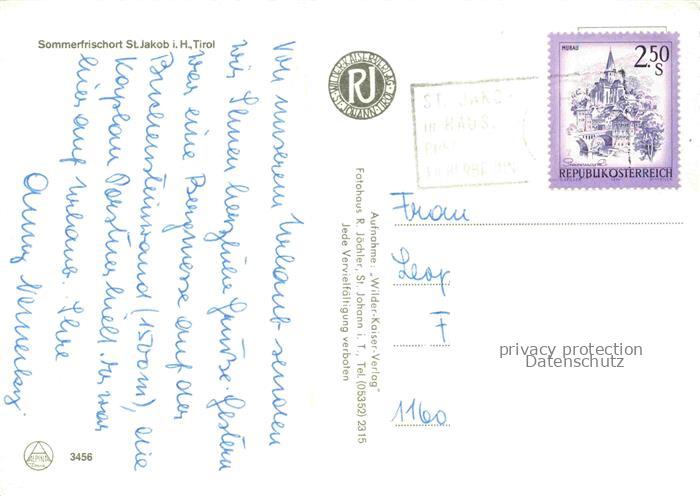 Sommerfrischort St. Jakob i. H., Tirol
Von unserem Urlaub senden
wir Ihnen herzliche Grüße. Gestern
war eine Bergmesse auf der
(1500m), die
Kaplan hielt. Er war
hier auf Urlaub. Ihre
Anny
3456
WILDER KAISER VERLAG
ST. JOHANN TIROL
RJ
Aufnahme: „Wilder-Kaiser-Verlag"
Fotohaus R. Jöchler, St. Johann i. T., Tel. (05352) 2315
Jede Vervielfältigung verboten
ST. JAKOB
in HAUS
MURAU
2.50
S
REPUBLIK ÖSTERREICH
Frau
Leop
F
1160
privacy protection
Datenschutz